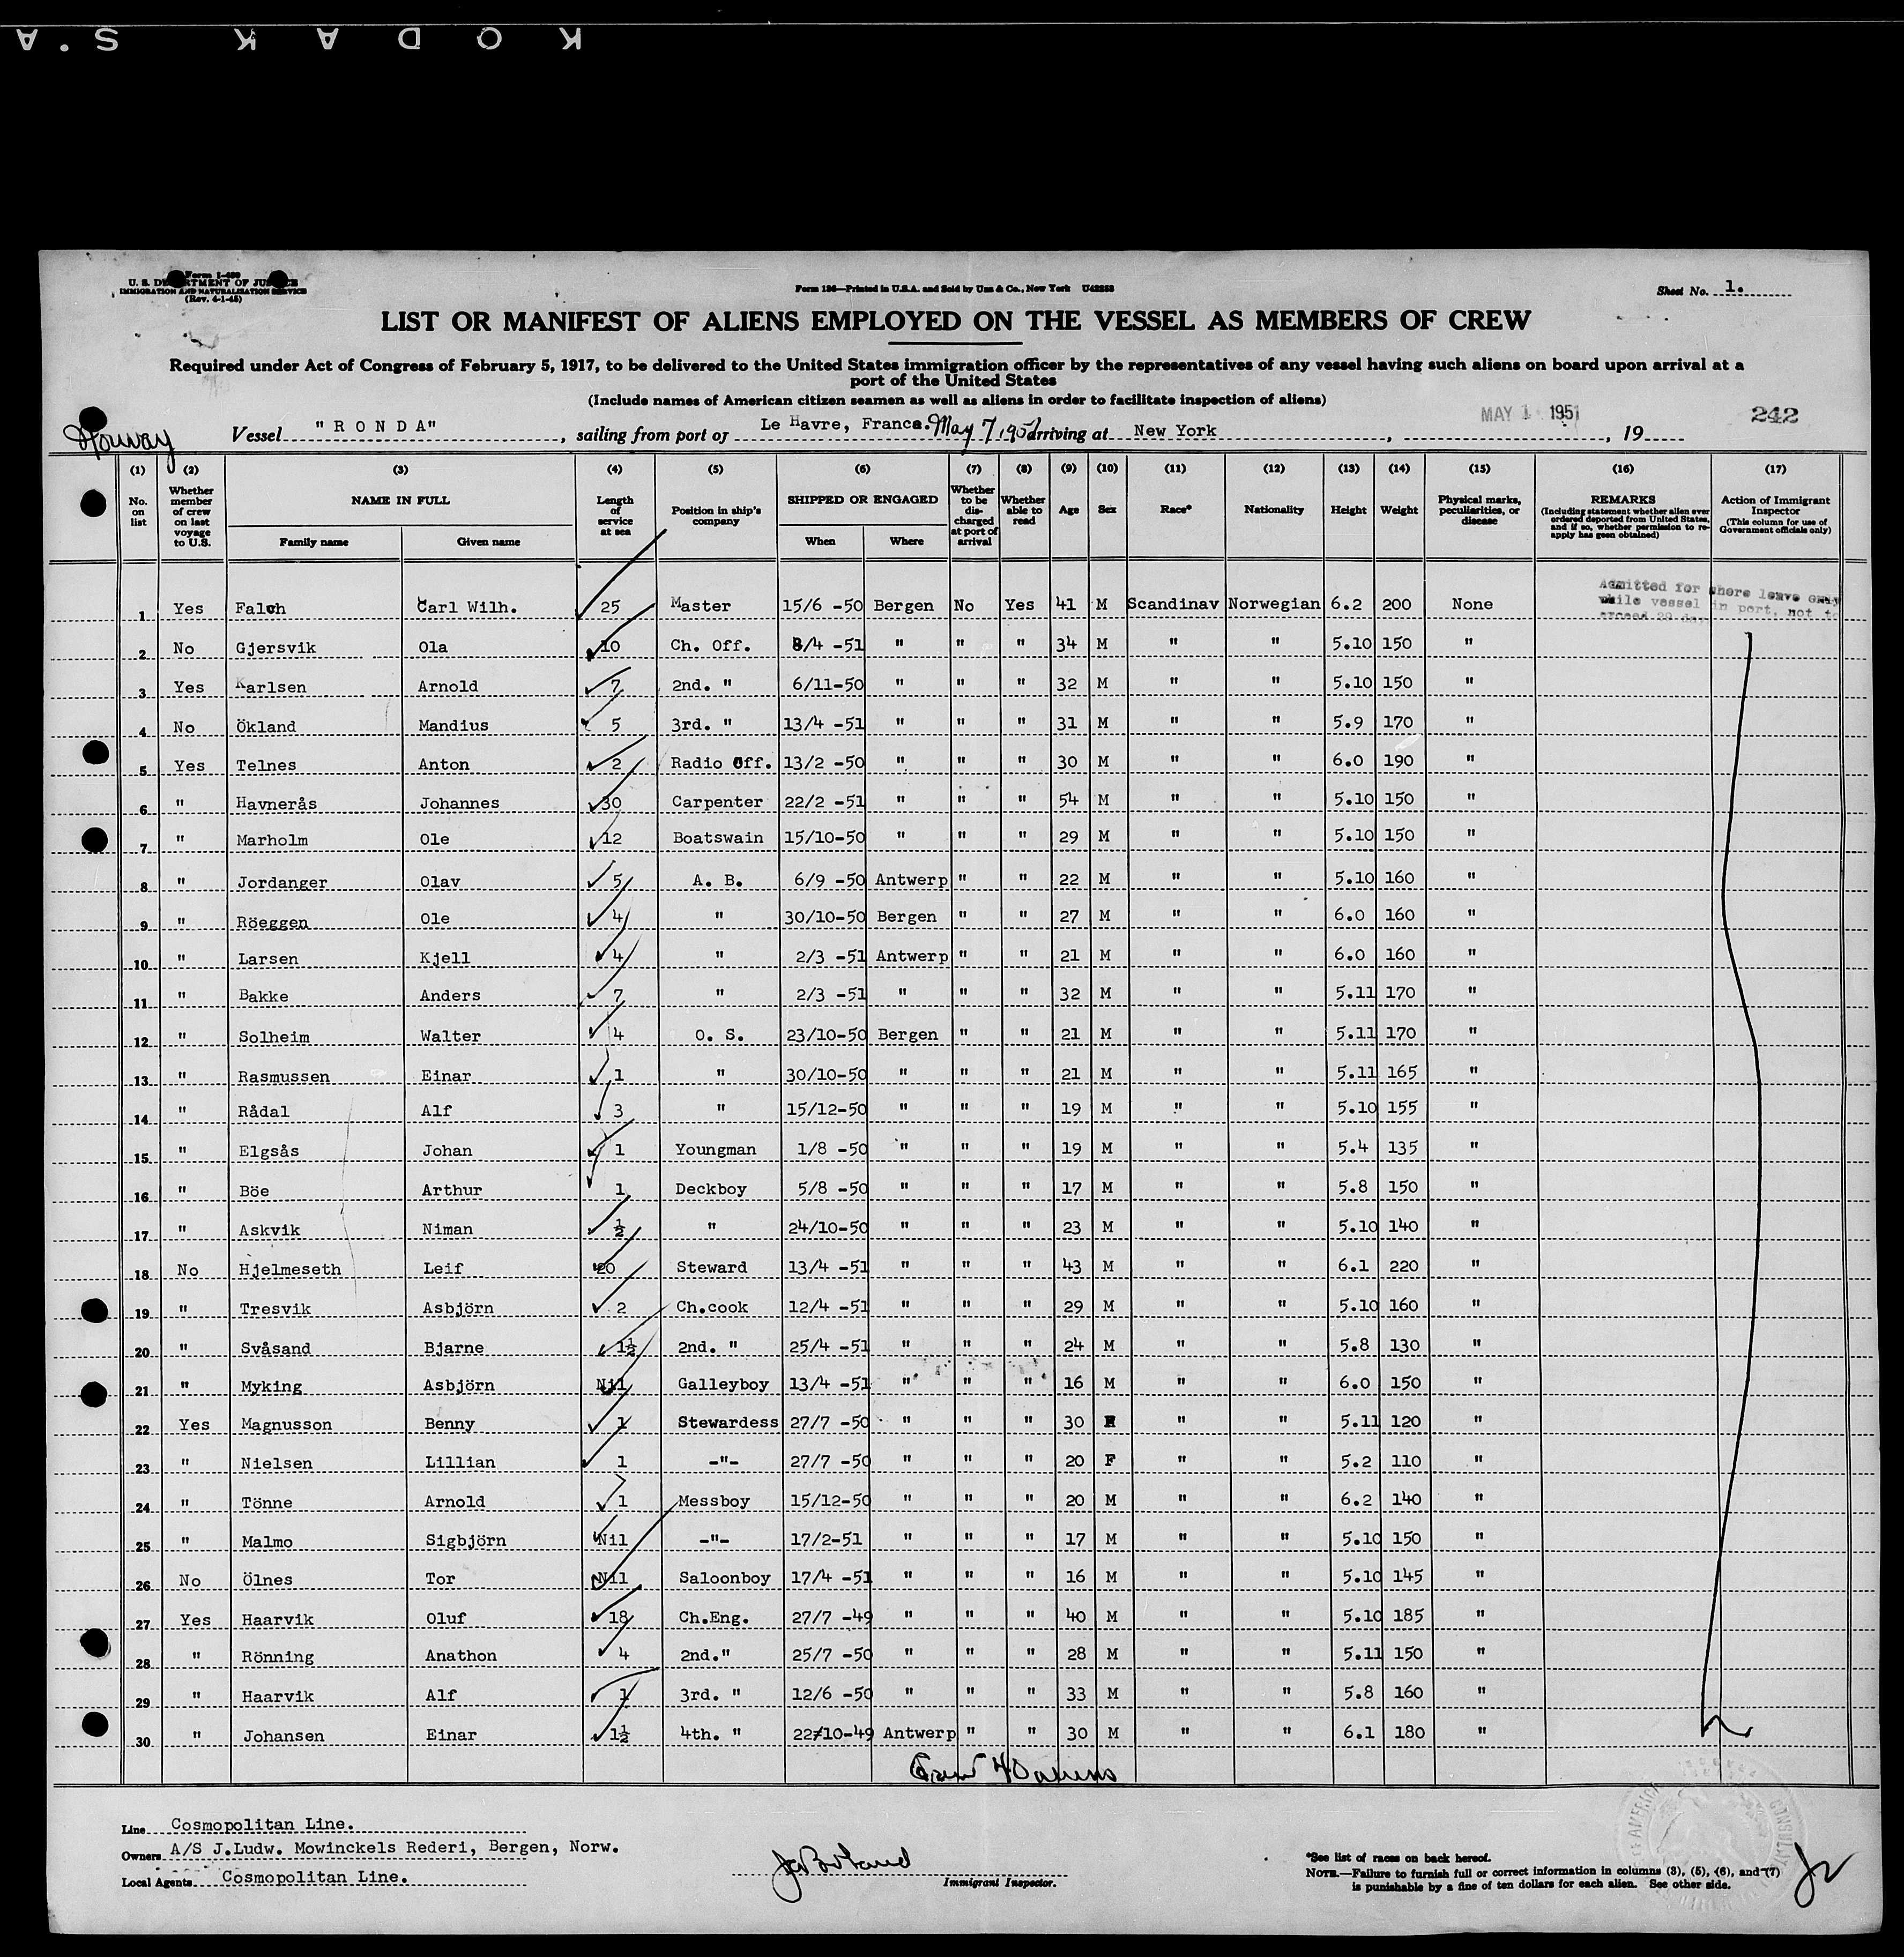 KODAK S.A
Form I-480
U. S. DEPARTMENT OF JUSTICE
IMMIGRATION AND NATURALIZATION SERVICE
(Rev. 4-1-45)
Form 186—Printed in U.S.A. and Sold by Unz & Co., New York U42258
Sheet No. 1.
LIST OR MANIFEST OF ALIENS EMPLOYED ON THE VESSEL AS MEMBERS OF CREW
Required under Act of Congress of February 5, 1917, to be delivered to the United States immigration officer by the representatives of any vessel having such aliens on board upon arrival at a
port of the United States
(Include names of American citizen seamen as well as aliens in order to facilitate inspection of aliens)
MAY 1 1951 242
Norway Vessel "RONDA", sailing from port of Le Havre, France. May 7, 1951 arriving at New York, , 19
(1) (2) (3) (4) (5) (6) (7) (8) (9) (10) (11) (12) (13) (14) (15) (16) (17)
No. on list Whether member of crew on last voyage to U.S. NAME IN FULL Family name Given name Length of service at sea Position in ship's company SHIPPED OR ENGAGED When Where Whether to be discharged at port of arrival Whether able to read Age Sex Race* Nationality Height Weight Physical marks, peculiarities, or disease REMARKS (Including statement whether alien ever ordered deported from United States, and if so, whether permission to re-apply has geen obtained) Action of Immigrant Inspector (This column for use of Government officials only)
Admitted for shore leave only
while vessel in port, not to
exceed 29 days
1 Yes Falch Carl Wilh. 25 Master 15/6 -50 Bergen No Yes 41 M Scandinav Norwegian 6.2 200 None
2 No Gjersvik Ola 10 Ch. Off. 8/4 -51 " " " 34 M " " 5.10 150 "
3 Yes Karlsen Arnold 7 2nd. " 6/11-50 " " " 32 M " " 5.10 150 "
4 No Ökland Mandius 5 3rd. " 13/4 -51 " " " 31 M " " 5.9 170 "
5 Yes Telnes Anton 2 Radio Off. 13/2 -50 " " " 30 M " " 6.0 190 "
6 " Havnerås Johannes 30 Carpenter 22/2 -51 " " " 54 M " " 5.10 150 "
7 " Marholm Ole 12 Boatswain 15/10-50 " " " 29 M " " 5.10 150 "
8 " Jordanger Olav 5 A. B. 6/9 -50 Antwerp " " 22 M " " 5.10 160 "
9 " Röeggen Ole 4 " 30/10-50 Bergen " " 27 M " " 6.0 160 "
10 " Larsen Kjell 4 " 2/3 -51 Antwerp " " 21 M " " 6.0 160 "
11 " Bakke Anders 7 " 2/3 -51 " " " 32 M " " 5.11 170 "
12 " Solheim Walter 4 O. S. 23/10-50 Bergen " " 21 M " " 5.11 170 "
13 " Rasmussen Einar 1 " 30/10-50 " " " 21 M " " 5.11 165 "
14 " Rådal Alf 3 " 15/12-50 " " " 19 M " " 5.10 155 "
15 " Elgsås Johan 1 Youngman 1/8 -50 " " " 19 M " " 5.4 135 "
16 " Böe Arthur 1 Deckboy 5/8 -50 " " " 17 M " " 5.8 150 "
17 " Askvik Niman ½ " 24/10-50 " " " 23 M " " 5.10 140 "
18 No Hjelmeseth Leif 20 Steward 13/4 -51 " " " 43 M " " 6.1 220 "
19 " Tresvik Asbjörn 2 Ch.cook 12/4 -51 " " " 29 M " " 5.10 160 "
20 " Svåsand Bjarne 1½ 2nd. " 25/4 -51 " " " 24 M " " 5.8 130 "
21 " Myking Asbjörn Nil Galleyboy 13/4 -51 " " " 16 M " " 6.0 150 "
22 Yes Magnusson Benny 1 Stewardess 27/7 -50 " " " 30 " " 5.11 120 "
23 " Nielsen Lillian 1 -"- 27/7 -50 " " " 20 F " " 5.2 110 "
24 " Tönne Arnold 1 Messboy 15/12-50 " " " 20 M " " 6.2 140 "
25 " Malmo Sigbjörn Nil -"- 17/2-51 " " " 17 M " " 5.10 150 "
26 No Ölnes Tor Nil Saloonboy 17/4 -51 " " " 16 M " " 5.10 145 "
27 Yes Haarvik Oluf 18 Ch.Eng. 27/7 -49 " " " 40 M " " 5.10 185 "
28 " Rönning Anathon 4 2nd." 25/7 -50 " " " 28 M " " 5.11 150 "
29 " Haarvik Alf 1 3rd. " 12/6 -50 " " " 33 M " " 5.8 160 "
30 " Johansen Einar 1½ 4th. " 22/10-49 Antwerp " " 30 M " " 6.1 180 "
Line Cosmopolitan Line.
Owners A/S J.Ludw. Mowinckels Rederi, Bergen, Norw.
Local Agents Cosmopolitan Line.
Immigrant Inspector.
*See list of races on back hereof.
NOTE.—Failure to furnish full or correct information in columns (3), (5), (6), and (7)
is punishable by a fine of ten dollars for each alien. See other side.